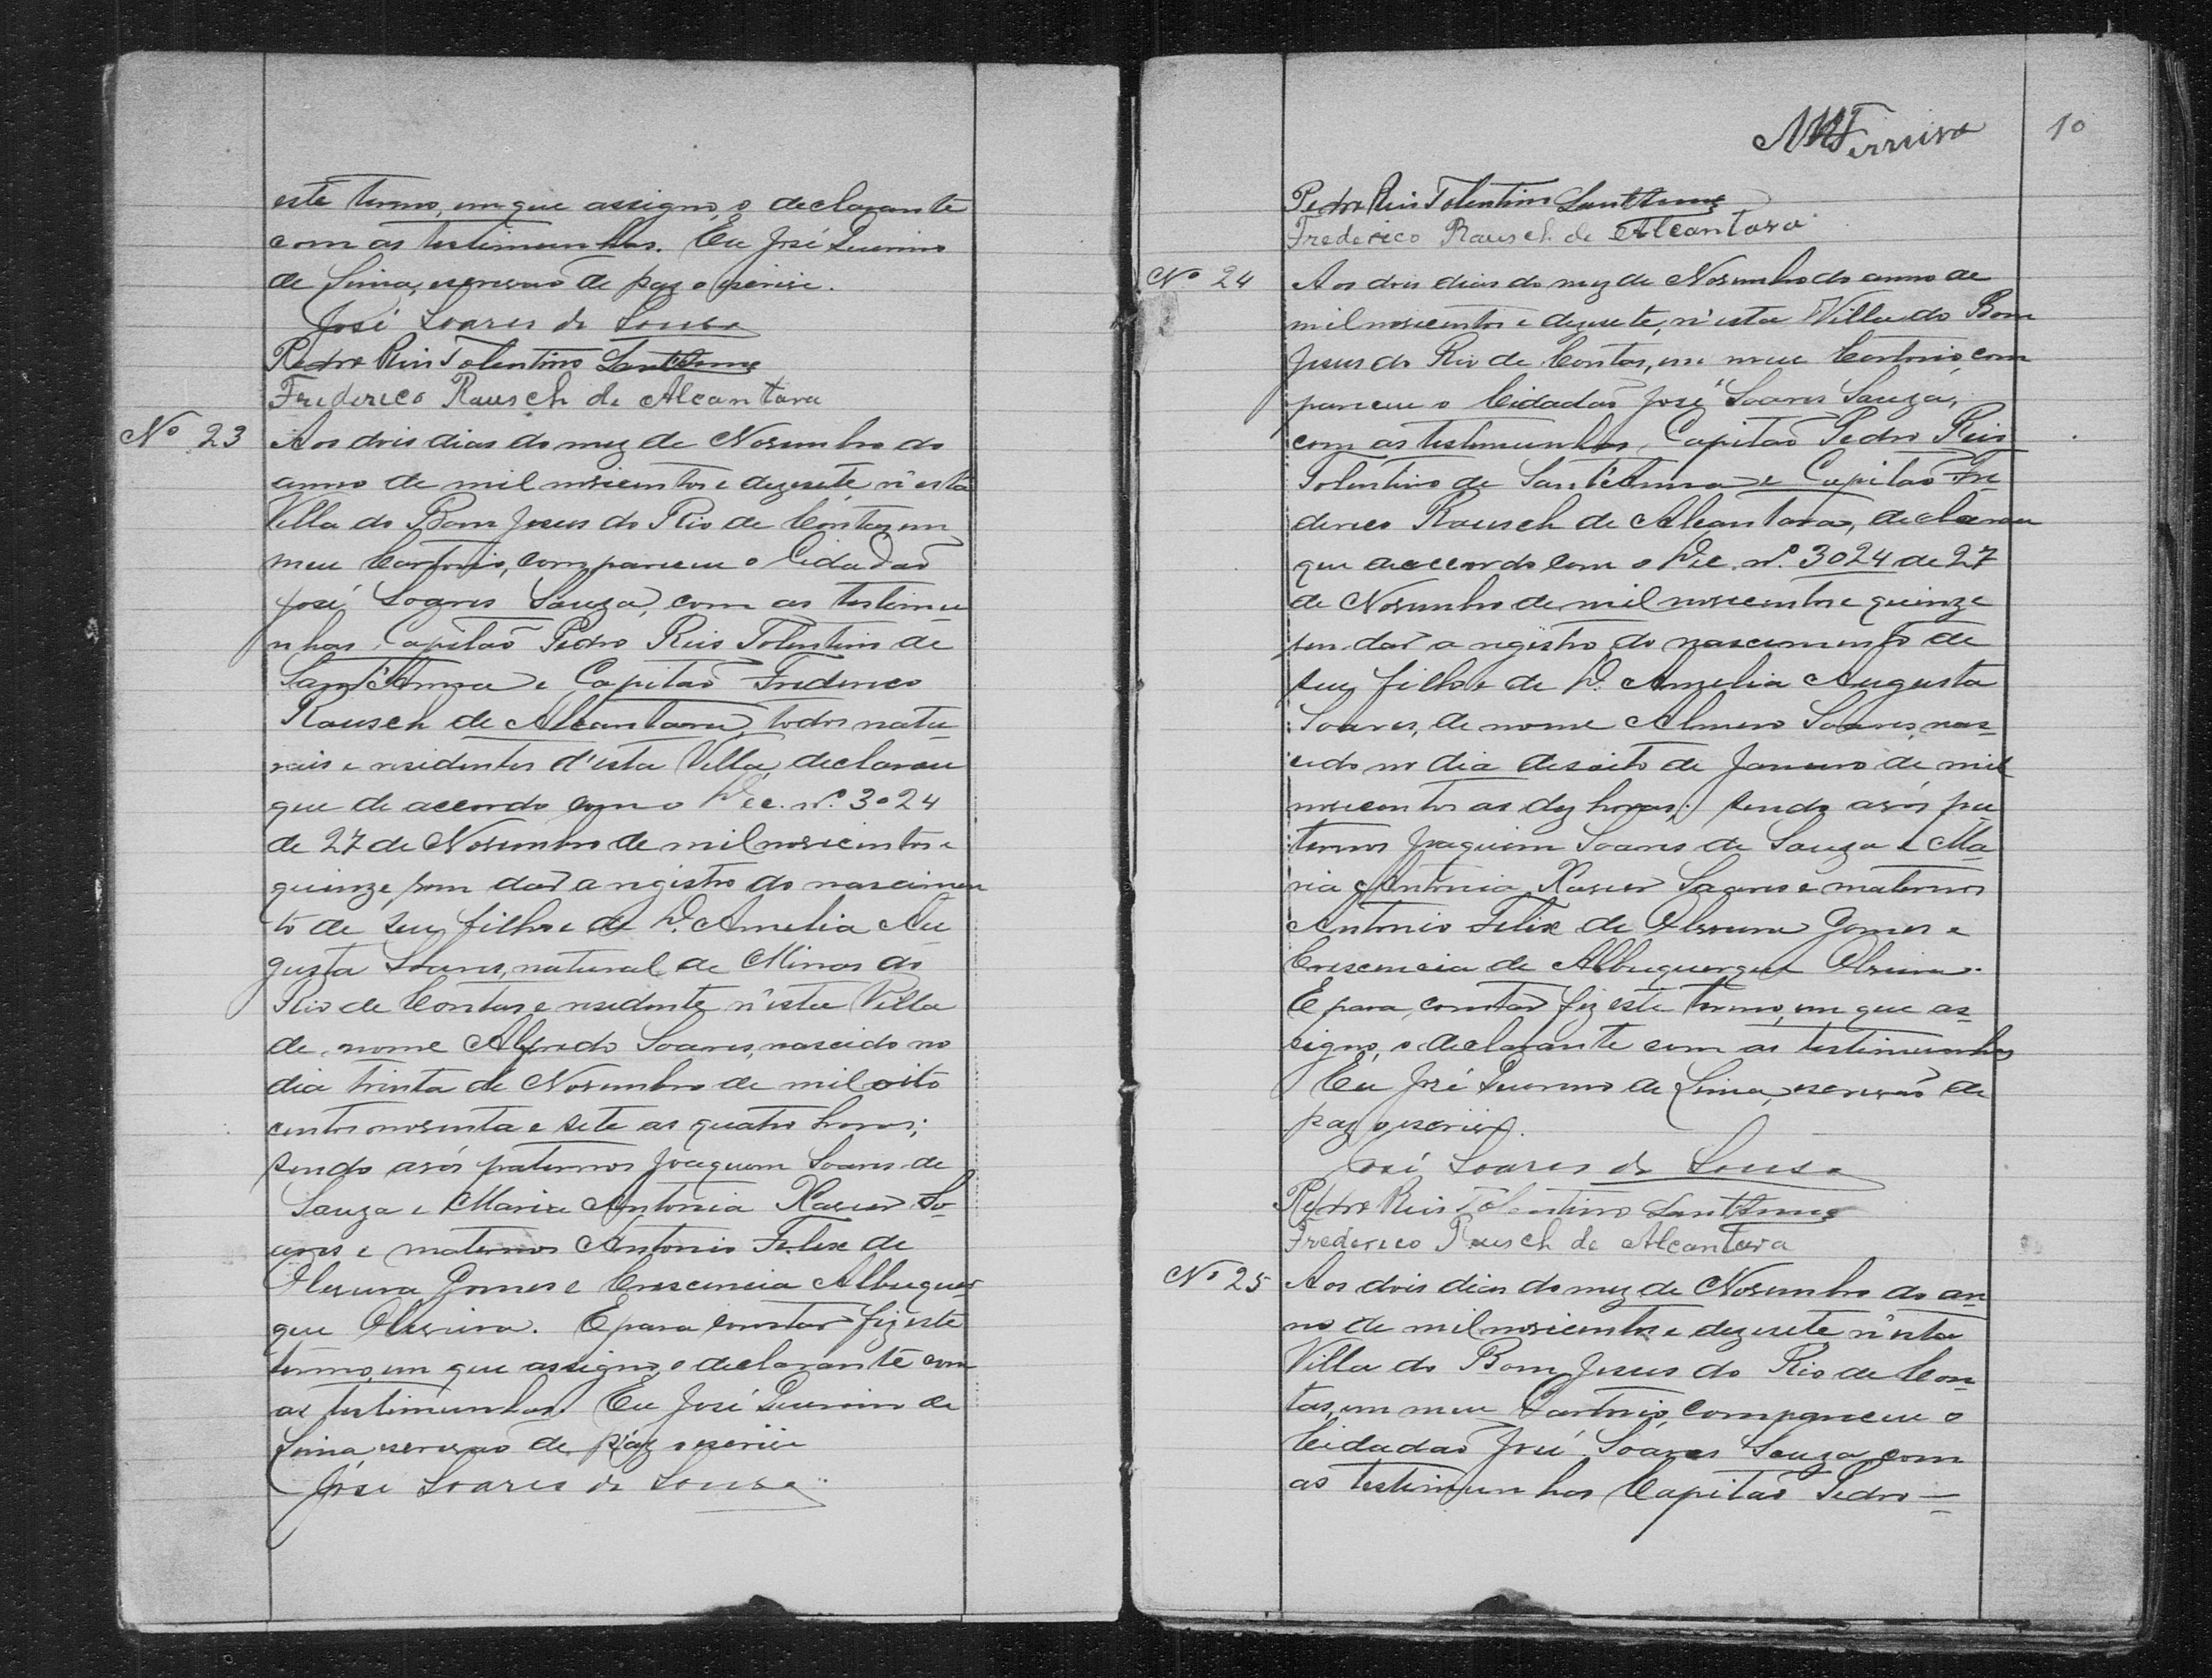 este termo, em que assigno, o declarante
com as testimunhas. Eu José Querino
de Lima, escrivão de paz o escrivi.
José Soares de Sousa
Pedro Reis Tolentino Sant'Anna
Frederico Rausch de Alcantara
Nº 23
Aos dois dias do mez de Novembro do
anno de mil novicentos e dezesete, n'esta
Villa do Bom Jesus do Rio de Contas, em
meu Cartorio, compareceu o Cidadão
José Soares Souza, com as testimu-
nhas, Capitão Pedro Reis Tolentino de
Sant'Anna e Capitão Frederico
Rausch de Alcantara, todos natu-
rais e residentes d'esta Villa, declarou
que de accordo com o Dec. nº. 3024
de 27 de Novembro de mil novicentos e
quinze, vem dar a registro do nascimen
to de seu filho e de D. Amelia Au-
gusta Soares, natural de Minas do
Rio de Contas e residente n'esta Villa
de nome Alfredo Soares, nascido no
dia trinta de Novembro de mil oito
centos noventa e sete as quatro horas;
sendo avós paternos Joaquim Soares de
Souza e Maria Antonia Xavier So-
ares e maternos Antonio Felix de
Oliveira Gomes e Crescencia Albuquer
que Oliveira. E para constar fiz este
termo, em que assigno, o declarante com
as testimunhas. Eu José Querino de
Lima, escrivão de paz o escrivi
José Soares de Sousa
Ferreira
10
Pedro Reis Tolentino Sant'Anna
Frederico Rausch de Alcantara
Nº 24
Aos dois dias do mez de Novembro do anno de
mil novicentos e dezesete, n'esta Villa do Bom
Jesus do Rio de Contas, em meu Cartorio, com
pareceu o Cidadão José Soares Souza,
com as testimunhas, Capitão Pedro Reis
Tolentino de Sant'Anna e Capitão Fre-
derico Rausch de Alcantara, declarou
que de accordo com o Dec. nº. 3024 de 27
de Novembro de mil novicentos e quinze
vem dar a registro do nascimento de
seu filho e de D. Amelia Augusta
Soares, de nome Almiro Soares, nas-
cido no dia desoito de Janeiro de mil
novicentos as dez horas; sendo avós pa-
ternos Joaquim Soares de Souza e Ma-
ria Antonia Xavier Soares e maternos
Antonio Felix de Oliveira Gomes e
Crescencia de Albuquerque Oliveira.
E para constar fiz este termo, em que as-
signo, o declarante com as testimunhas
Eu José Querino de Lima, escrivão de
paz o escrivi.
José Soares de Sousa
Pedro Reis Tolentino Sant'Anna
Frederico Rausch de Alcantara
Nº 25
Aos dois dias do mez de Novembro do an-
no de mil novicentos e dezesete, n'esta
Villa do Bom Jesus do Rio de Con-
tas, em meu Cartorio, compareceu o
Cidadão José Soares Souza, com
as testimunhas Capitão Pedro —